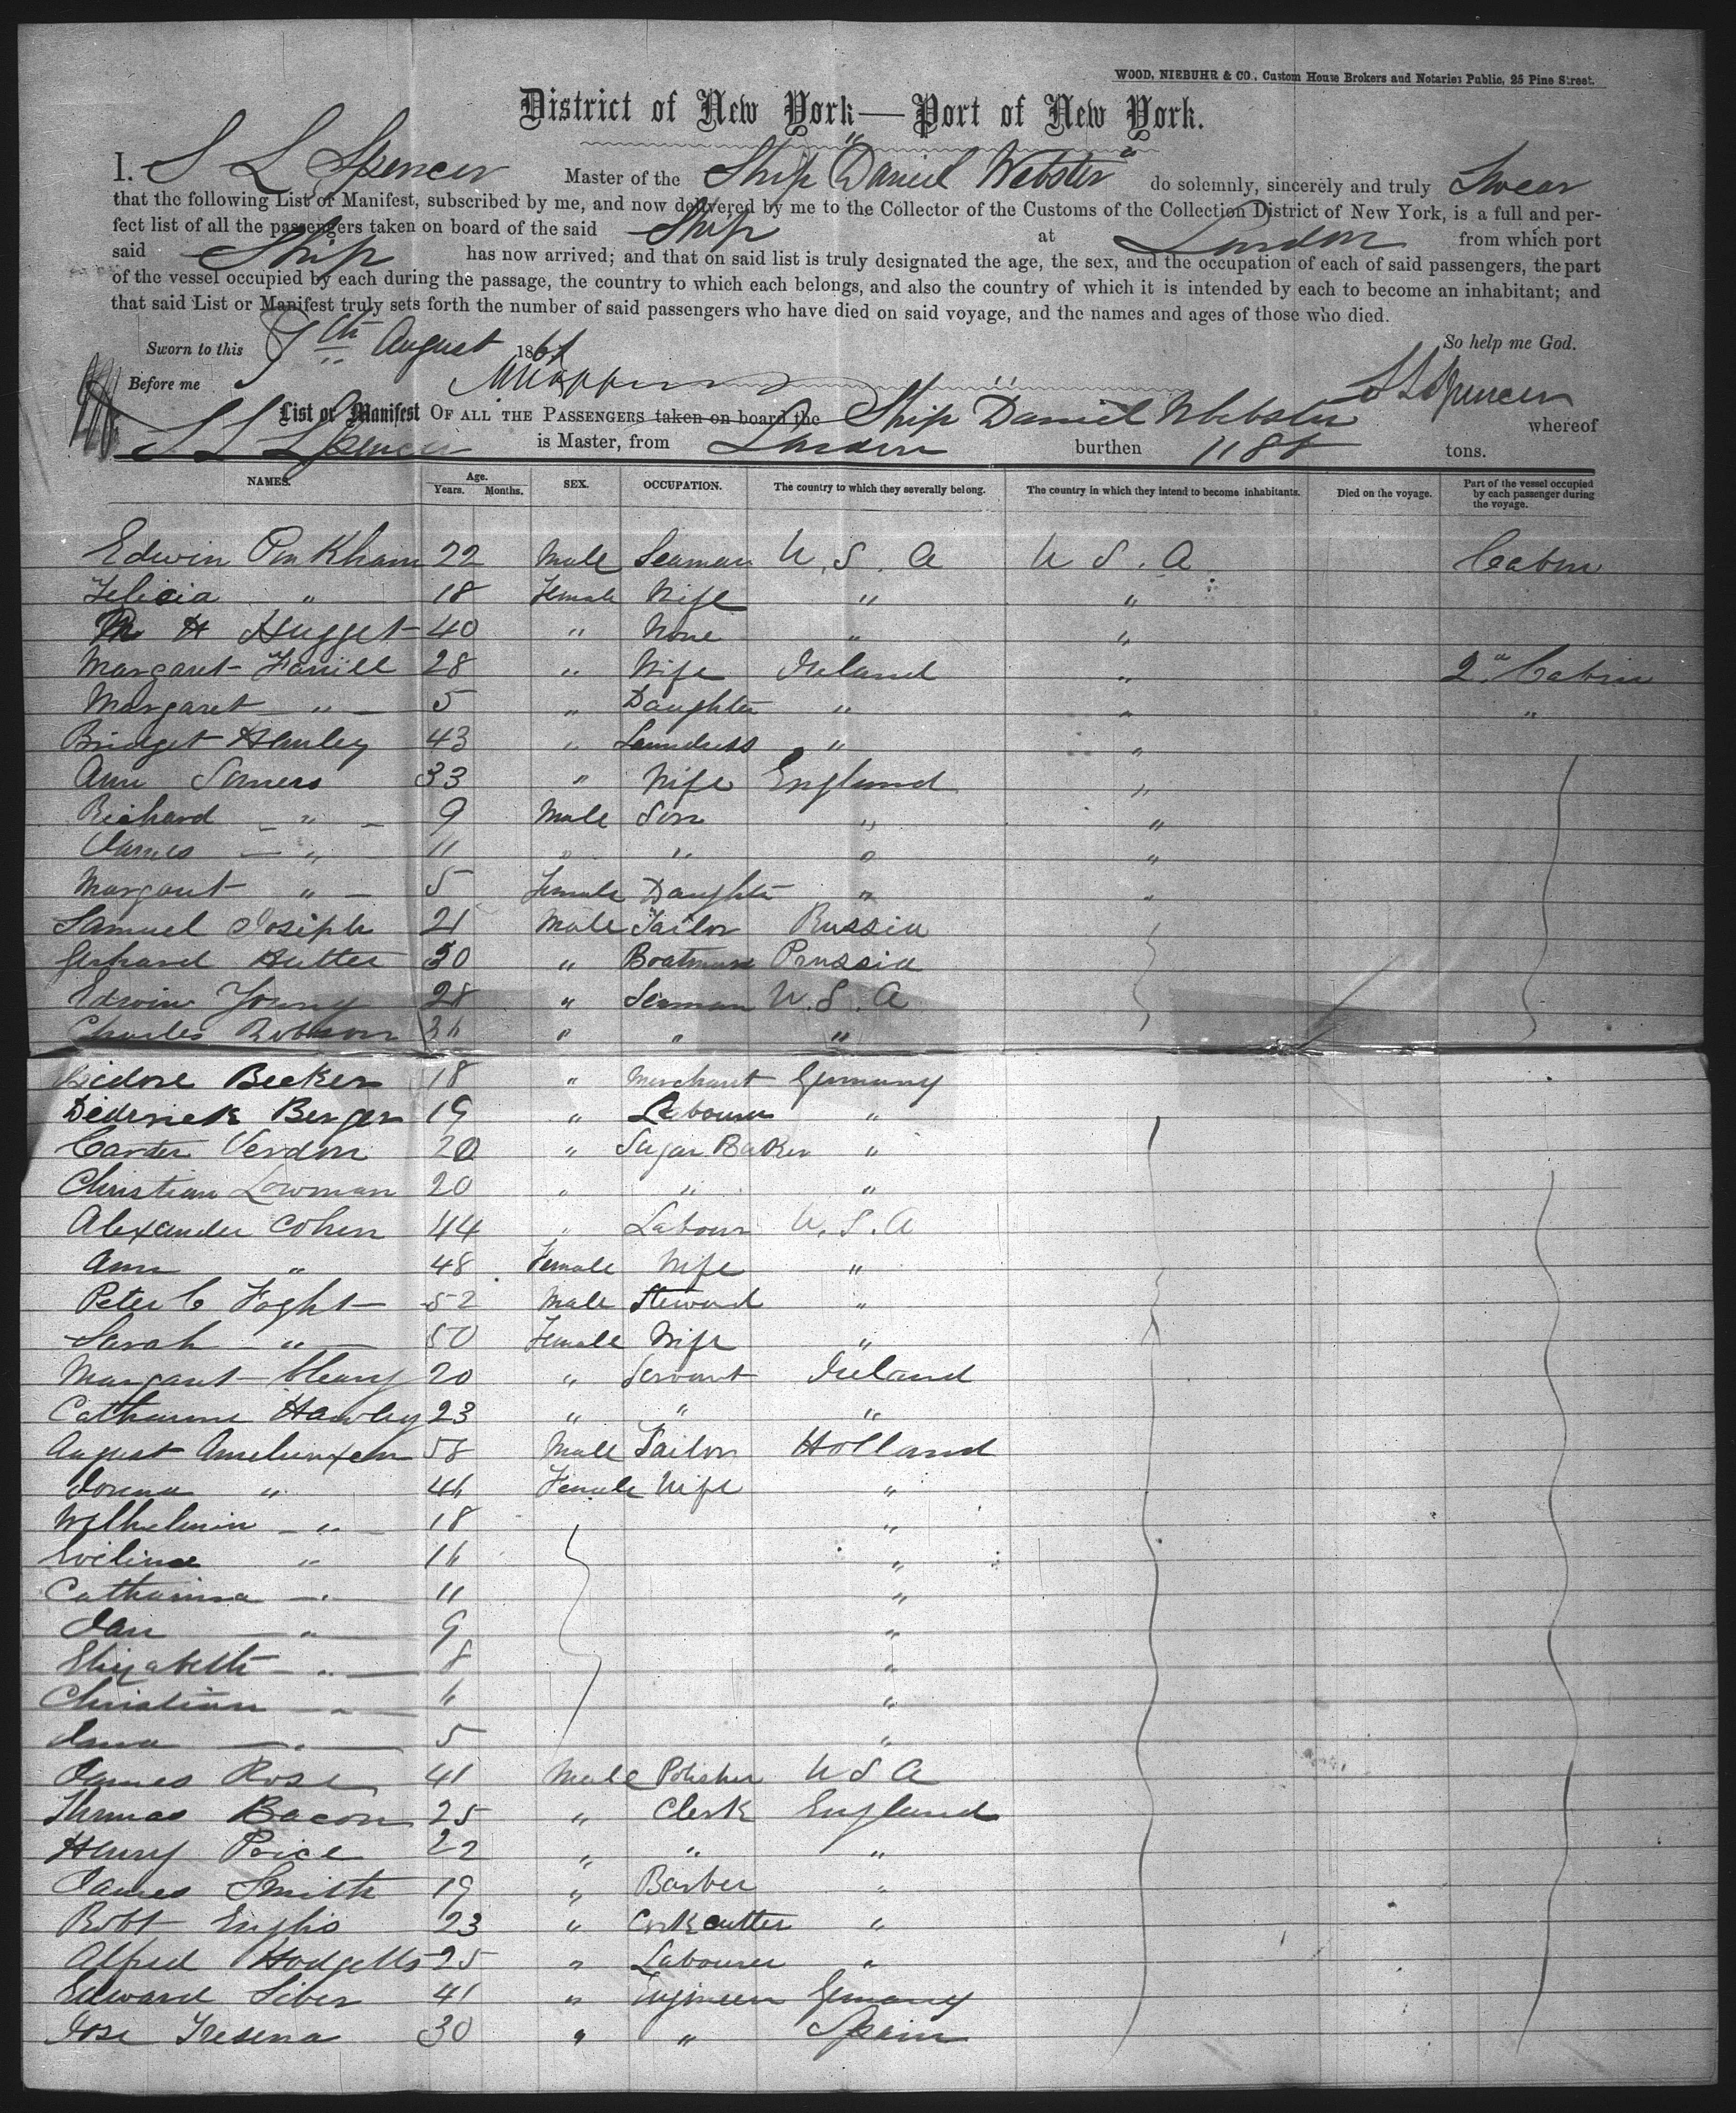 WOOD, NIEBUHR & CO., Custom House Brokers and Notaries Public, 25 Pine Street.
District of New York—Port of New York.
I. S L Spencer Master of the Ship "Daniel Webster" do solemnly, sincerely and truly Swear
that the following List or Manifest, subscribed by me, and now delivered by me to the Collector of the Customs of the Collection District of New York, is a full and per-
fect list of all the passengers taken on board of the said Ship at London from which port
said Ship has now arrived; and that on said list is truly designated the age, the sex, and the occupation of each of said passengers, the part
of the vessel occupied by each during the passage, the country to which each belongs, and also the country of which it is intended by each to become an inhabitant; and
that said List or Manifest truly sets forth the number of said passengers who have died on said voyage, and the names and ages of those who died.
Sworn to this th August 186 So help me God.
Before me S L Spencer
List or Manifest OF ALL THE PASSENGERS taken on board the Ship Daniel Webster whereof
S L Spencer is Master, from London burthen 1188 tons.
NAMES. Age. Years. Months. SEX. OCCUPATION. The country to which they severally belong. The country in which they intend to become inhabitants. Died on the voyage. Part of the vessel occupied by each passenger during the voyage.
Edwin Pinkham 22 Male Seaman U.S.A U S.A Cabin
Felicia " 18 Female Wife " "
H Hugget 40 " None " "
Margaret Farrill 28 " Wife Ireland " 2d Cabin
Margaret " 5 " Daughter " " "
Bridget Hanley 43 " Laundress " "
Ann Somers 33 " Wife England "
Richard " 9 Male Son " "
James " 11 " " " "
Margaret " 5 Female Daughter " "
Samuel Joseph 21 Male Tailor Russia
Gerhard Hutter 30 " Boatman Prussia
Edwin Young 28 " Seaman U.S.A
Charles Robson 36 " " "
Isidore Becker 18 " Merchant Germany
Diderick Berger 19 " Labourer "
Carsten Verdon 20 " Sugar Baker "
Christian Lowman 20 " " "
Alexander Cohen 44 " Labour U.S.A
Ann " 48 Female Wife "
Peter C Foght 52 Male Steward "
Sarah " 50 Female Wife "
Margaret Cleary 20 " Servant Ireland
Catharine Hawley 23 " " "
August Amelunxem 58 Male Tailor Holland
" 46 Female Wife "
Wilhelmin " 18 "
Evelina " 16 "
Catharina " 11 "
Jan " 9 "
Elizabeth " 8 "
Christian " 6 "
" 5 "
James Rose 41 Male Polisher U S A
Thomas Bacon 25 " Clerk England
Henry Price 22 " " "
James Smith 19 " Barber "
Robt Englis 23 " Cork cutter "
Alfred Hodgetts 25 " Labourer "
Edward Siber 41 " Engineer Germany
Jose Tresena 30 " " Spain